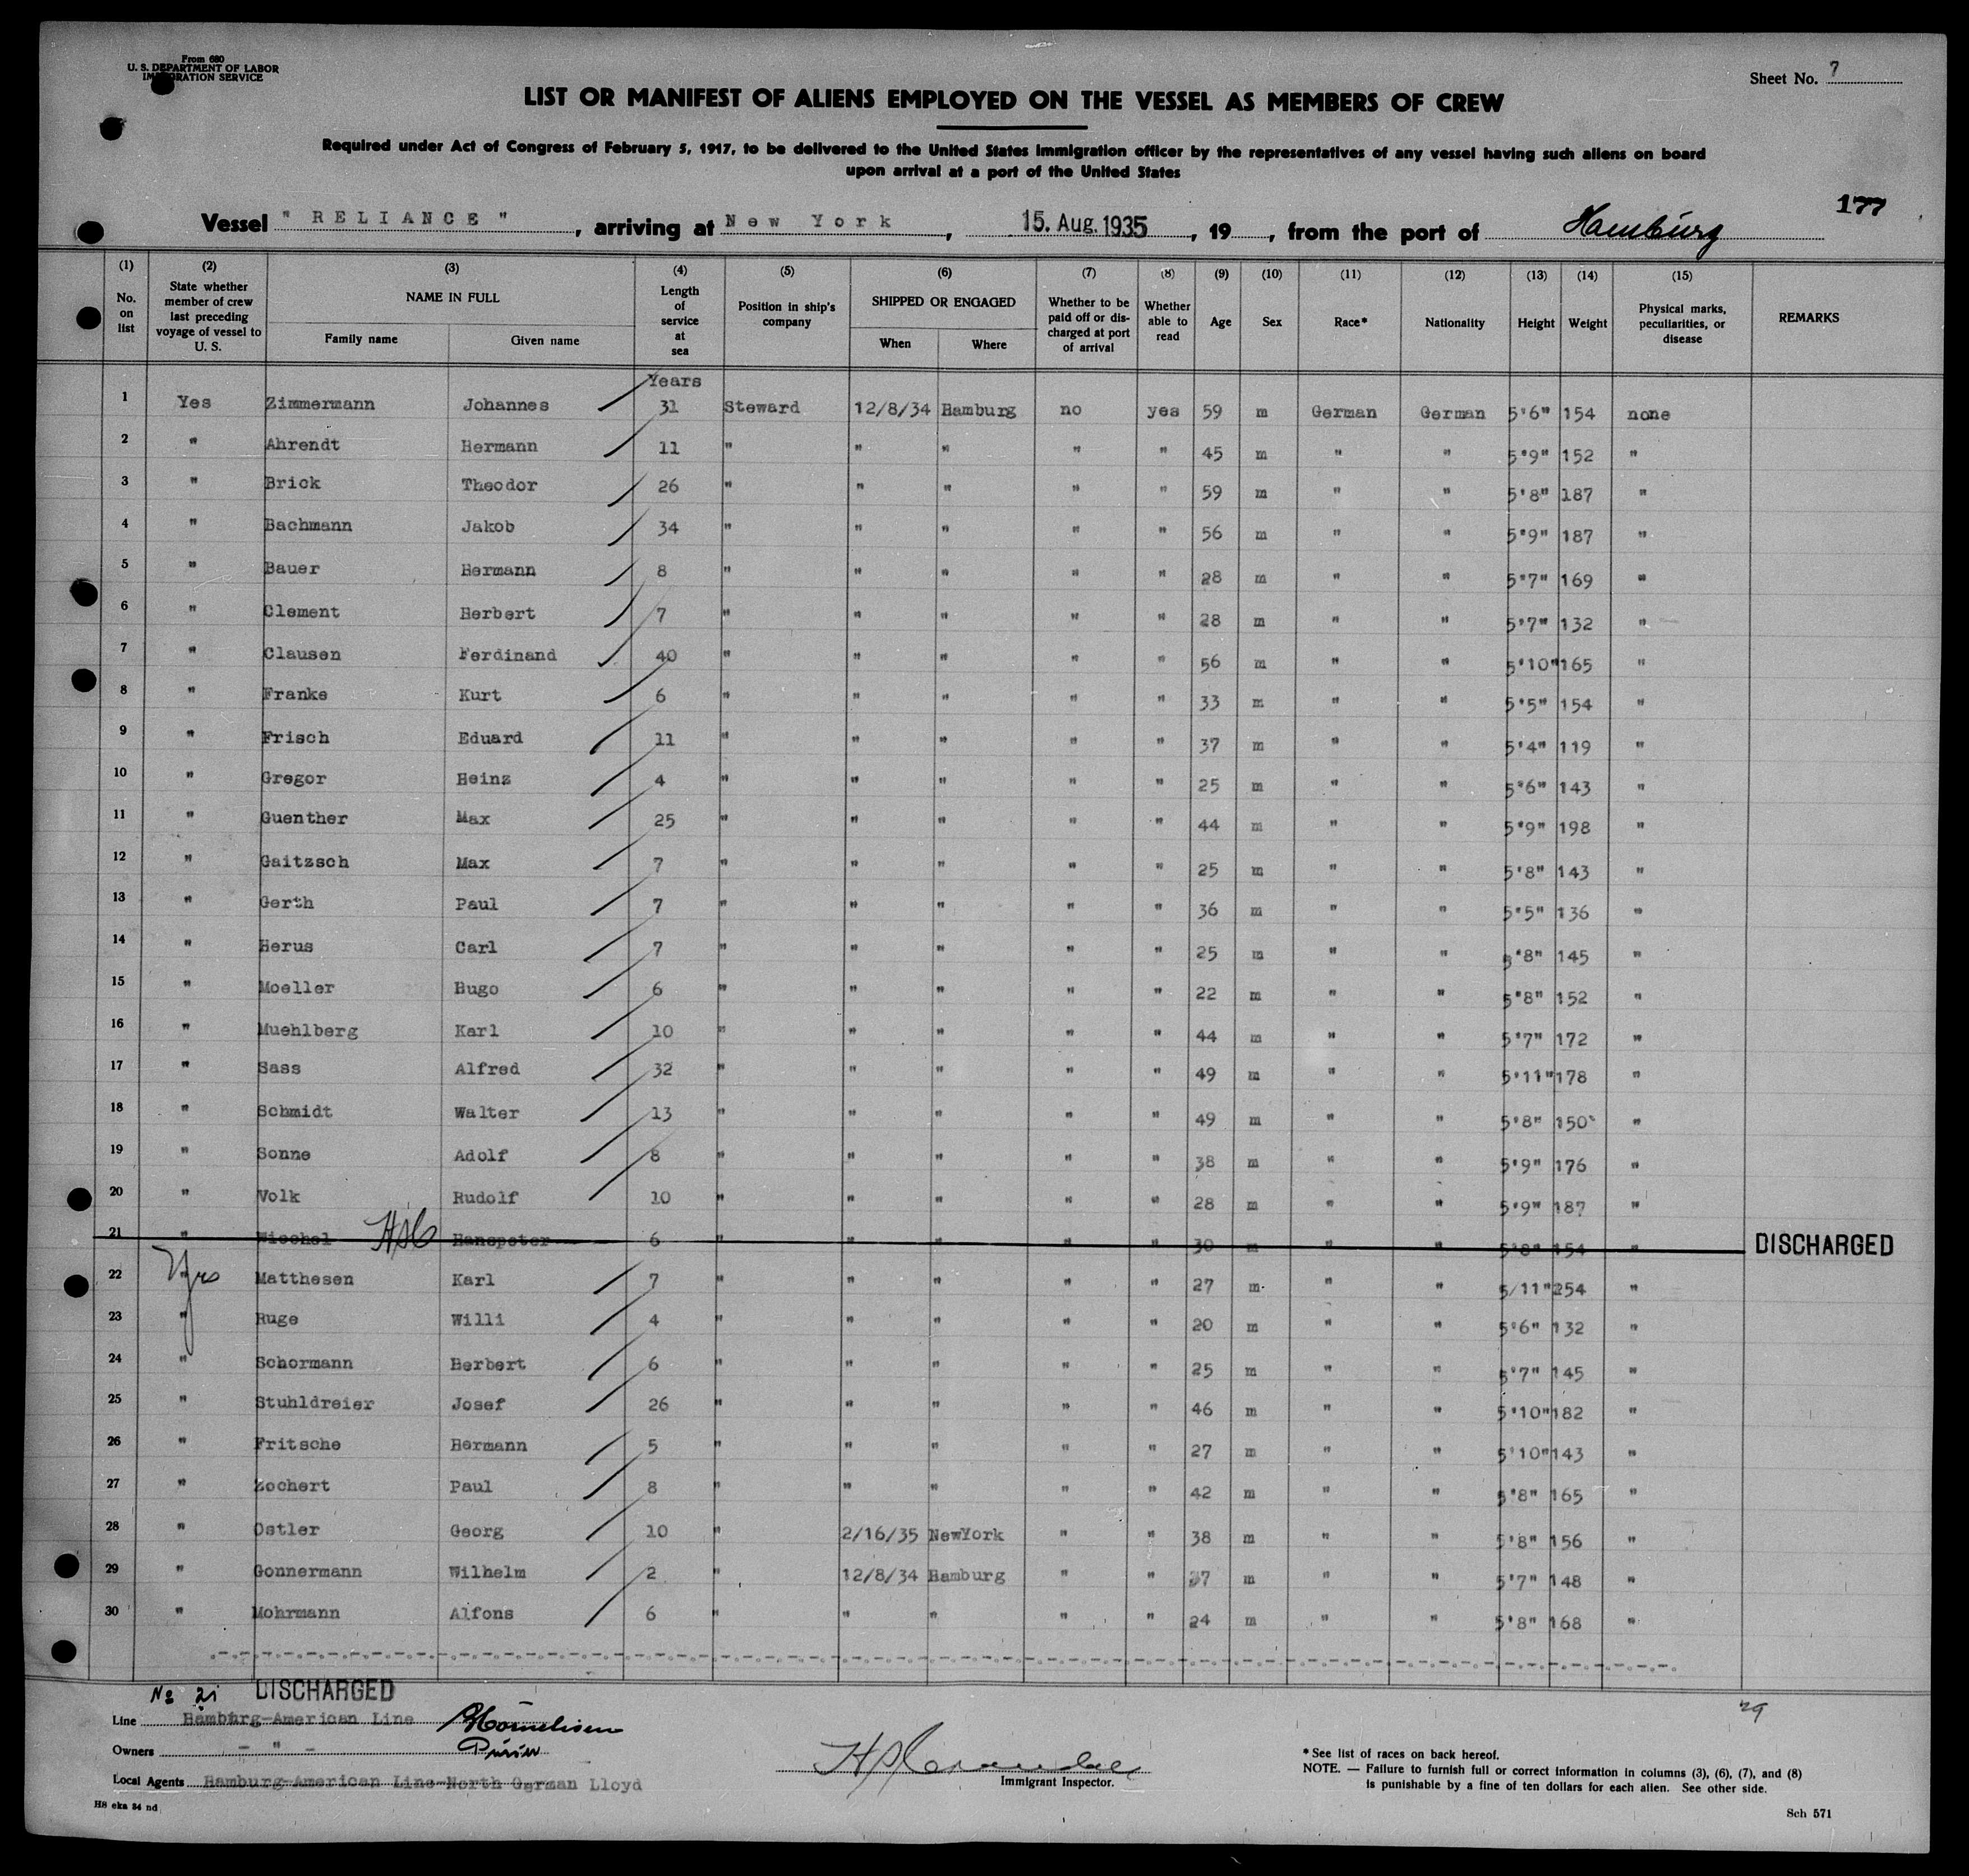 From 680
U. S. DEPARTMENT OF LABOR
IMMIGRATION SERVICE
Sheet No. 7
LIST OR MANIFEST OF ALIENS EMPLOYED ON THE VESSEL AS MEMBERS OF CREW
Required under Act of Congress of February 5, 1917, to be delivered to the United States Immigration officer by the representatives of any vessel having such aliens on board
upon arrival at a port of the United States
177
Vessel " RELIANCE " , arriving at New York , 15. Aug. 1935 , 19 , from the port of Hamburg
(1) No. on list (2) State whether member of crew last preceding voyage of vessel to U. S. (3) NAME IN FULL Family name Given name (4) Length of service at sea (5) Position in ship's company (6) SHIPPED OR ENGAGED When Where (7) Whether to be paid off or discharged at port of arrival (8) Whether able to read (9) Age (10) Sex (11) Race* (12) Nationality (13) Height (14) Weight (15) Physical marks, peculiarities, or disease REMARKS
Years
1 Yes Zimmermann Johannes 31 Steward 12/8/34 Hamburg no yes 59 m German German 5'6" 154 none
2 " Ahrendt Hermann 11 " " " " " 45 m " " 5'9" 152 "
3 " Brick Theodor 26 " " " " " 59 m " " 5'8" 187 "
4 " Bachmann Jakob 34 " " " " " 56 m " " 5'9" 187 "
5 " Bauer Hermann 8 " " " " " 28 m " " 5'7" 169 "
6 " Clement Herbert 7 " " " " " 28 m " " 5'7" 132 "
7 " Clausen Ferdinand 40 " " " " " 56 m " " 5'10" 165 "
8 " Franke Kurt 6 " " " " " 33 m " " 5'5" 154 "
9 " Frisch Eduard 11 " " " " " 37 m " " 5'4" 119 "
10 " Gregor Heinz 4 " " " " " 25 m " " 5'6" 143 "
11 " Guenther Max 25 " " " " " 44 m " " 5'9" 198 "
12 " Gaitzsch Max 7 " " " " " 25 m " " 5'8" 143 "
13 " Gerth Paul 7 " " " " " 36 m " " 5'5" 136 "
14 " Herus Carl 7 " " " " " 25 m " " 5'8" 145 "
15 " Moeller Hugo 6 " " " " " 22 m " " 5'8" 152 "
16 " Muehlberg Karl 10 " " " " " 44 m " " 5'7" 172 "
17 " Sass Alfred 32 " " " " " 49 m " " 5'11" 178 "
18 " Schmidt Walter 13 " " " " " 49 m " " 5'8" 150 "
19 " Sonne Adolf 8 " " " " " 38 m " " 5'9" 176 "
20 " Volk Rudolf 10 " " " " " 28 m " " 5'9" 187 "
21 " Wiechel Hanspeter 6 " " " " " 30 m " " 5'8" 154 " DISCHARGED
22 " Yes Matthesen Karl 7 " " " " " 27 m " " 5/11" 254 "
23 " Ruge Willi 4 " " " " " 20 m " " 5'6" 132 "
24 " Schormann Herbert 6 " " " " " 25 m " " 5'7" 145 "
25 " Stuhldreier Josef 26 " " " " " 46 m " " 5'10" 182 "
26 " Fritsche Hermann 5 " " " " " 27 m " " 5'10" 143 "
27 " Zochert Paul 8 " " " " " 42 m " " 5'8" 165 "
28 " Ostler Georg 10 " 2/16/35 NewYork " " 38 m " " 5'8" 156 "
29 " Gonnermann Wilhelm 2 " 12/8/34 Hamburg " " 37 m " " 5'7" 148 "
30 " Mohrmann Alfons 6 " " " " " 24 m " " 5'8" 168 "
No 21 DISCHARGED
29
Line Hamburg-American Line
Owners - " -
Local Agents Hamburg-American Line-North German Lloyd
Immigrant Inspector.
* See list of races on back hereof.
NOTE. — Failure to furnish full or correct information in columns (3), (6), (7), and (8)
is punishable by a fine of ten dollars for each alien. See other side.
H8 eka 34 nd
Sch 571